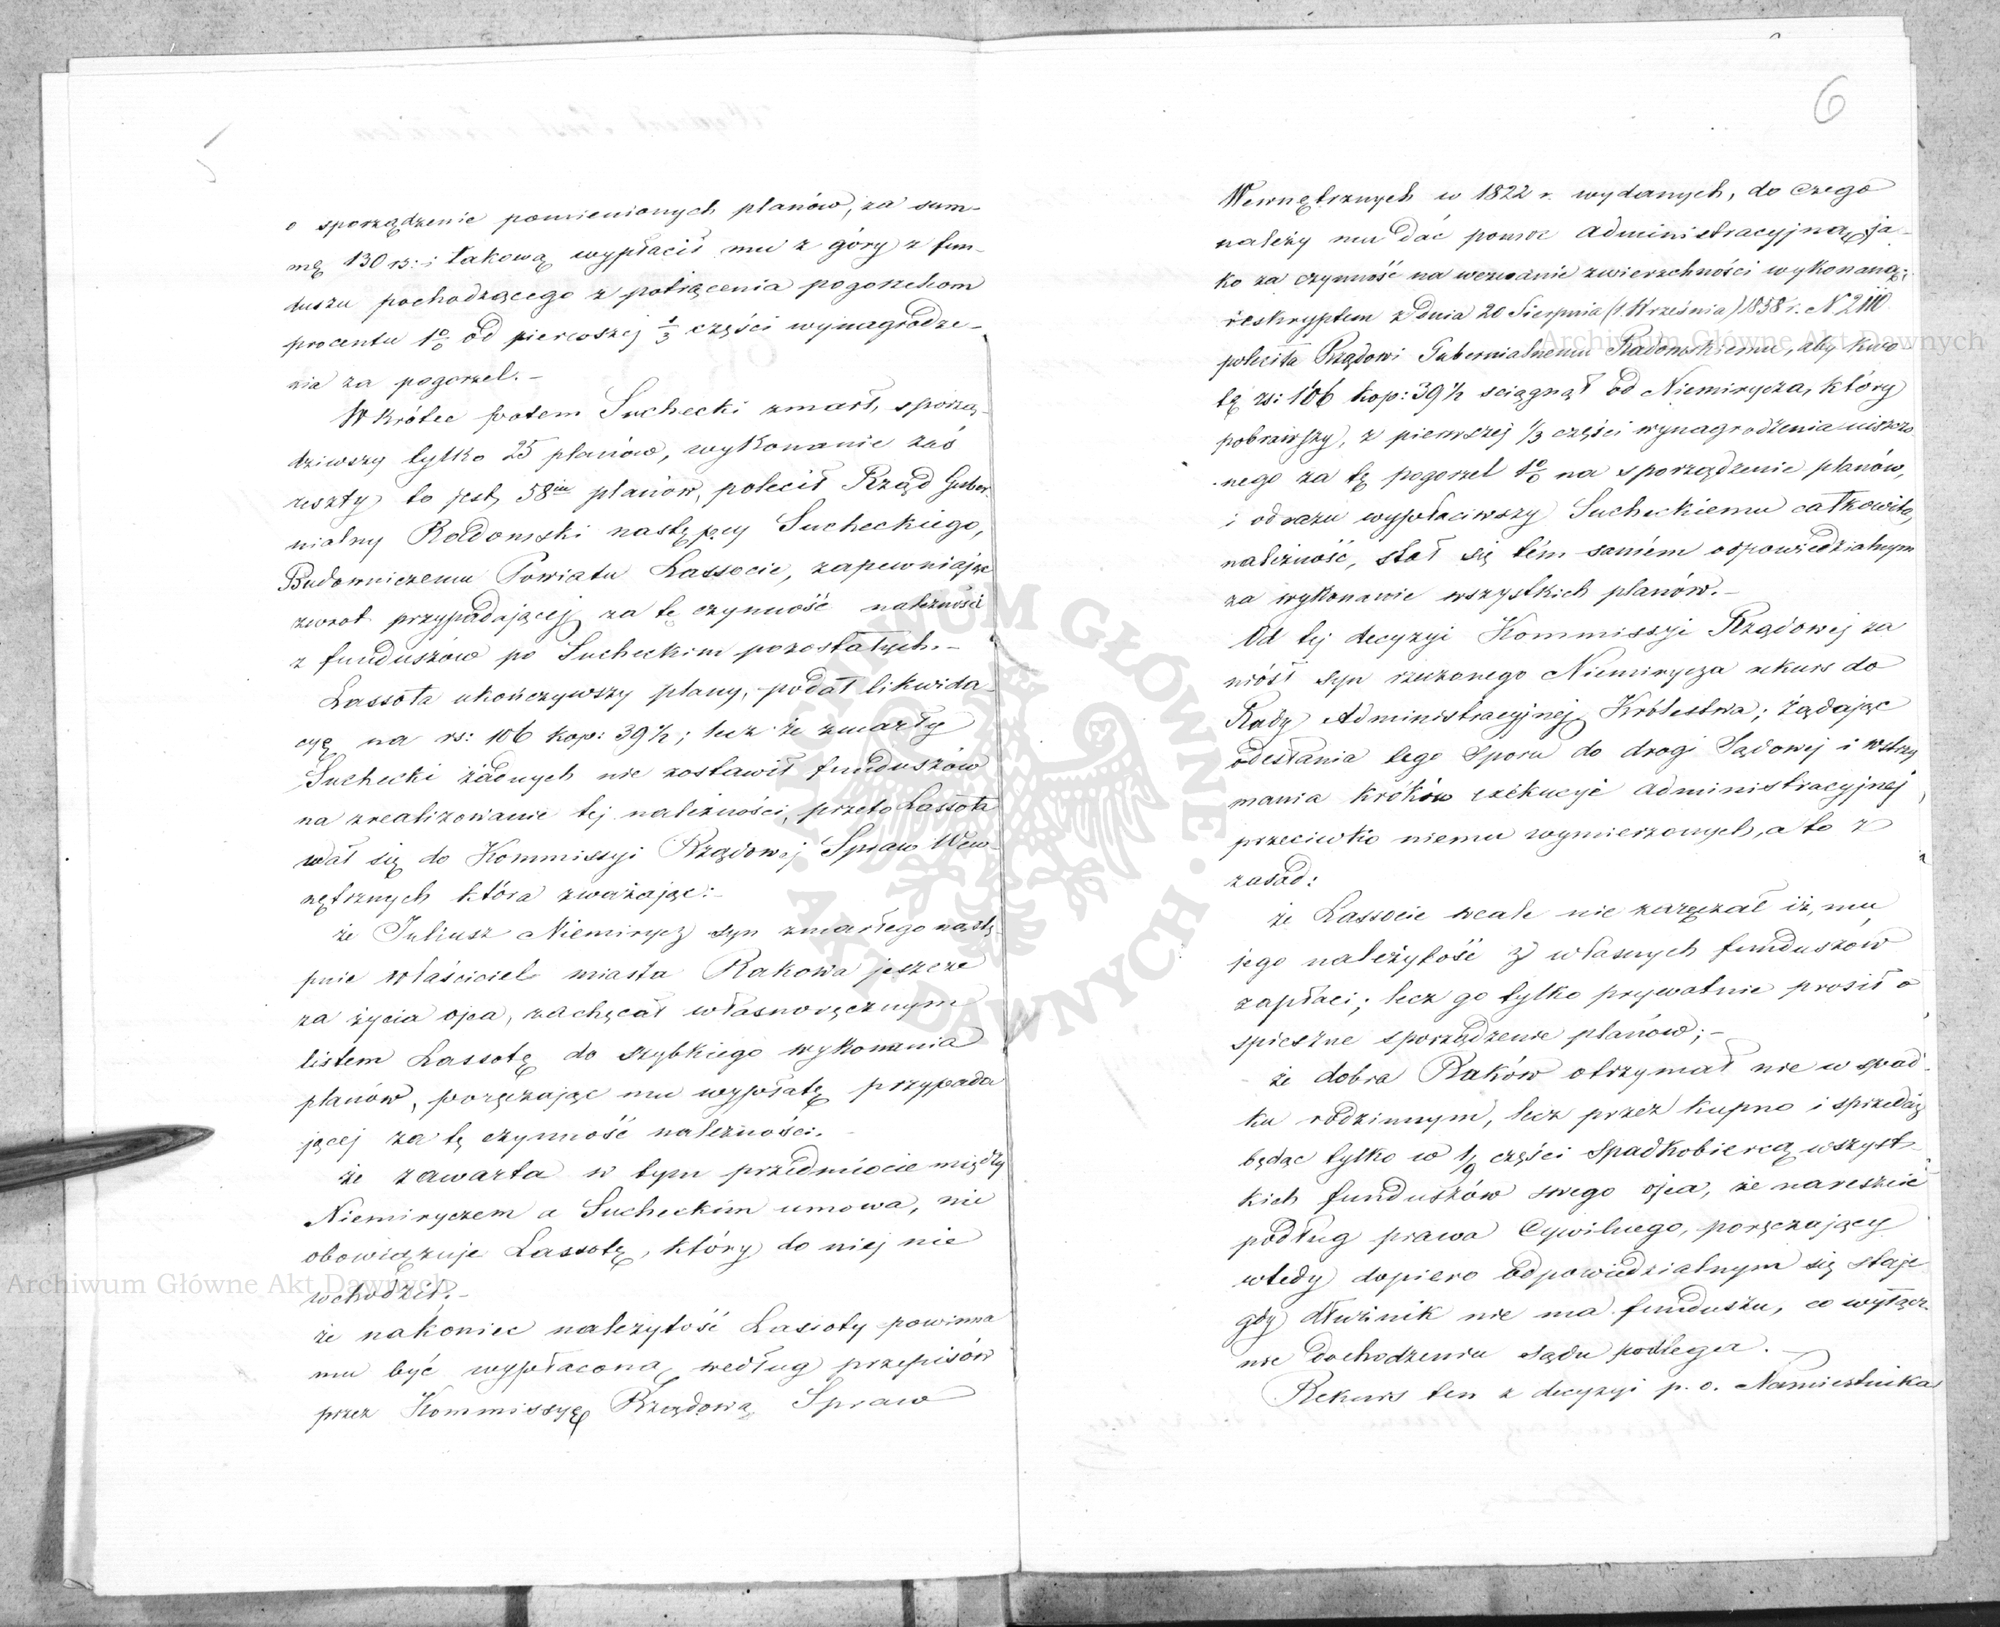 5
o sporządzenie pomienionych planów, za sum-
mę 130 rs: i takową wypłacił mu z góry z fun-
duszu pochodzącego z potrącenia pogorzelcom
procentu 1% od pierwszej 1/3 części wynagrodze-
nia za pogorzel.-
Wkrótce potem Suchecki zmarł, sporzą-
dziwszy tylko 25 planów, wykonanie zaś
reszty to jest 58iu planów, polecił Rząd Guber
nialny Radomski następcy Sucheckiego,
Budowniczemu Powiatu Lassocie, zapewniając
zwrot przypadającej za tę czynność należności
z funduszów po Sucheckim pozostałych.-
Lassota ukończywszy plany, podał likwida-
cyę na rs: 106 kop: 39½; lecz że zmarły
Suchecki żadnych nie zostawił funduszów
na zrealizowanie tej należności, przeto Lassota
wał się do Kommissyi Rządowej Spraw Wew-
nętrznych która zważając:-
że Juliusz Niemirycz syn zmarłego nastę-
pnie właściciel miasta Rakowa jeszcze
za życia ojca, zachęcał własnoręcznym
listem Lassotę do szybkiego wykonania
planów, poręczając mu wypłatę przypada
jącej za tę czynność należności.-
że zawarta w tym przedmiocie między
Niemiryczem a Sucheckim umowa, nie
obowiązuje Lassotę, który do niej nie
wchodził;-
że nakoniec należytość Lassoty powinna
mu być wypłacona według przepisów
przez Kommissyę Rządową Spraw
6
Wewnętrznych w 1822 r. wydanych, do czego
należy mu dać pomoc administracyjną, ja-
ko za czynność na wezwanie zwierzchności wykonaną;
reskryptem z dnia 20 Sierpnia (1 Września) 1858 r. N 2110
poleciła Rządowi Gubernialnemu Radomskiemu, aby kwo-
tę rs: 106 kop: 39½ ściągnął od Niemirycza, który
pobrawszy, z pierwszej 1/3 części wynagrodzenia uiszczo
nego za tę pogorzel 1% na sporządzenie planów,
i odrazu wypłaciwszy Sucheckiemu całkowitą
należność, stał się tém samém odpowiedzialnym
za wykonanie wszystkich planów.-
Od tej decyzyi Kommissyi Rządowej za
niósł syn rzeczonego Niemirycza rekurs do
Rady Administracyjnej Królestwa; żądając
odesłania tego sporu do drogi Sądowej i wstrzy
mania kroków exekucyi administracyjnej
przeciwko niemu wymierzonych, a to z
zasad:
że Lassocie wcale nie zaręczał iż, mu
jego należytość z własnych funduszów
zapłaci; lecz go tylko prywatnie prosił o
spieszne sporządzenie planów;-
że dobra Raków otrzymał nie w spad-
ku rodzinnym, lecz przez kupno i sprzedaż
będąc tylko w 1/9 części Spadkobiercą wszyst-
kich funduszów swego ojca, że nareszcie
podług prawa Cywilnego, poręczający
wtedy dopiero odpowiedzialnym się staje
gdy dłużnik nie ma funduszu, co wyłącz-
nie dochodzeniu sądu podlega.-
Rekurs ten z decyzyi p. o. Namiestnika
Archiwum Główne Akt Dawnych
Archiwum Główne Akt Dawnych
ARCHIWUM GŁÓWNE · AKT DAWNYCH ·